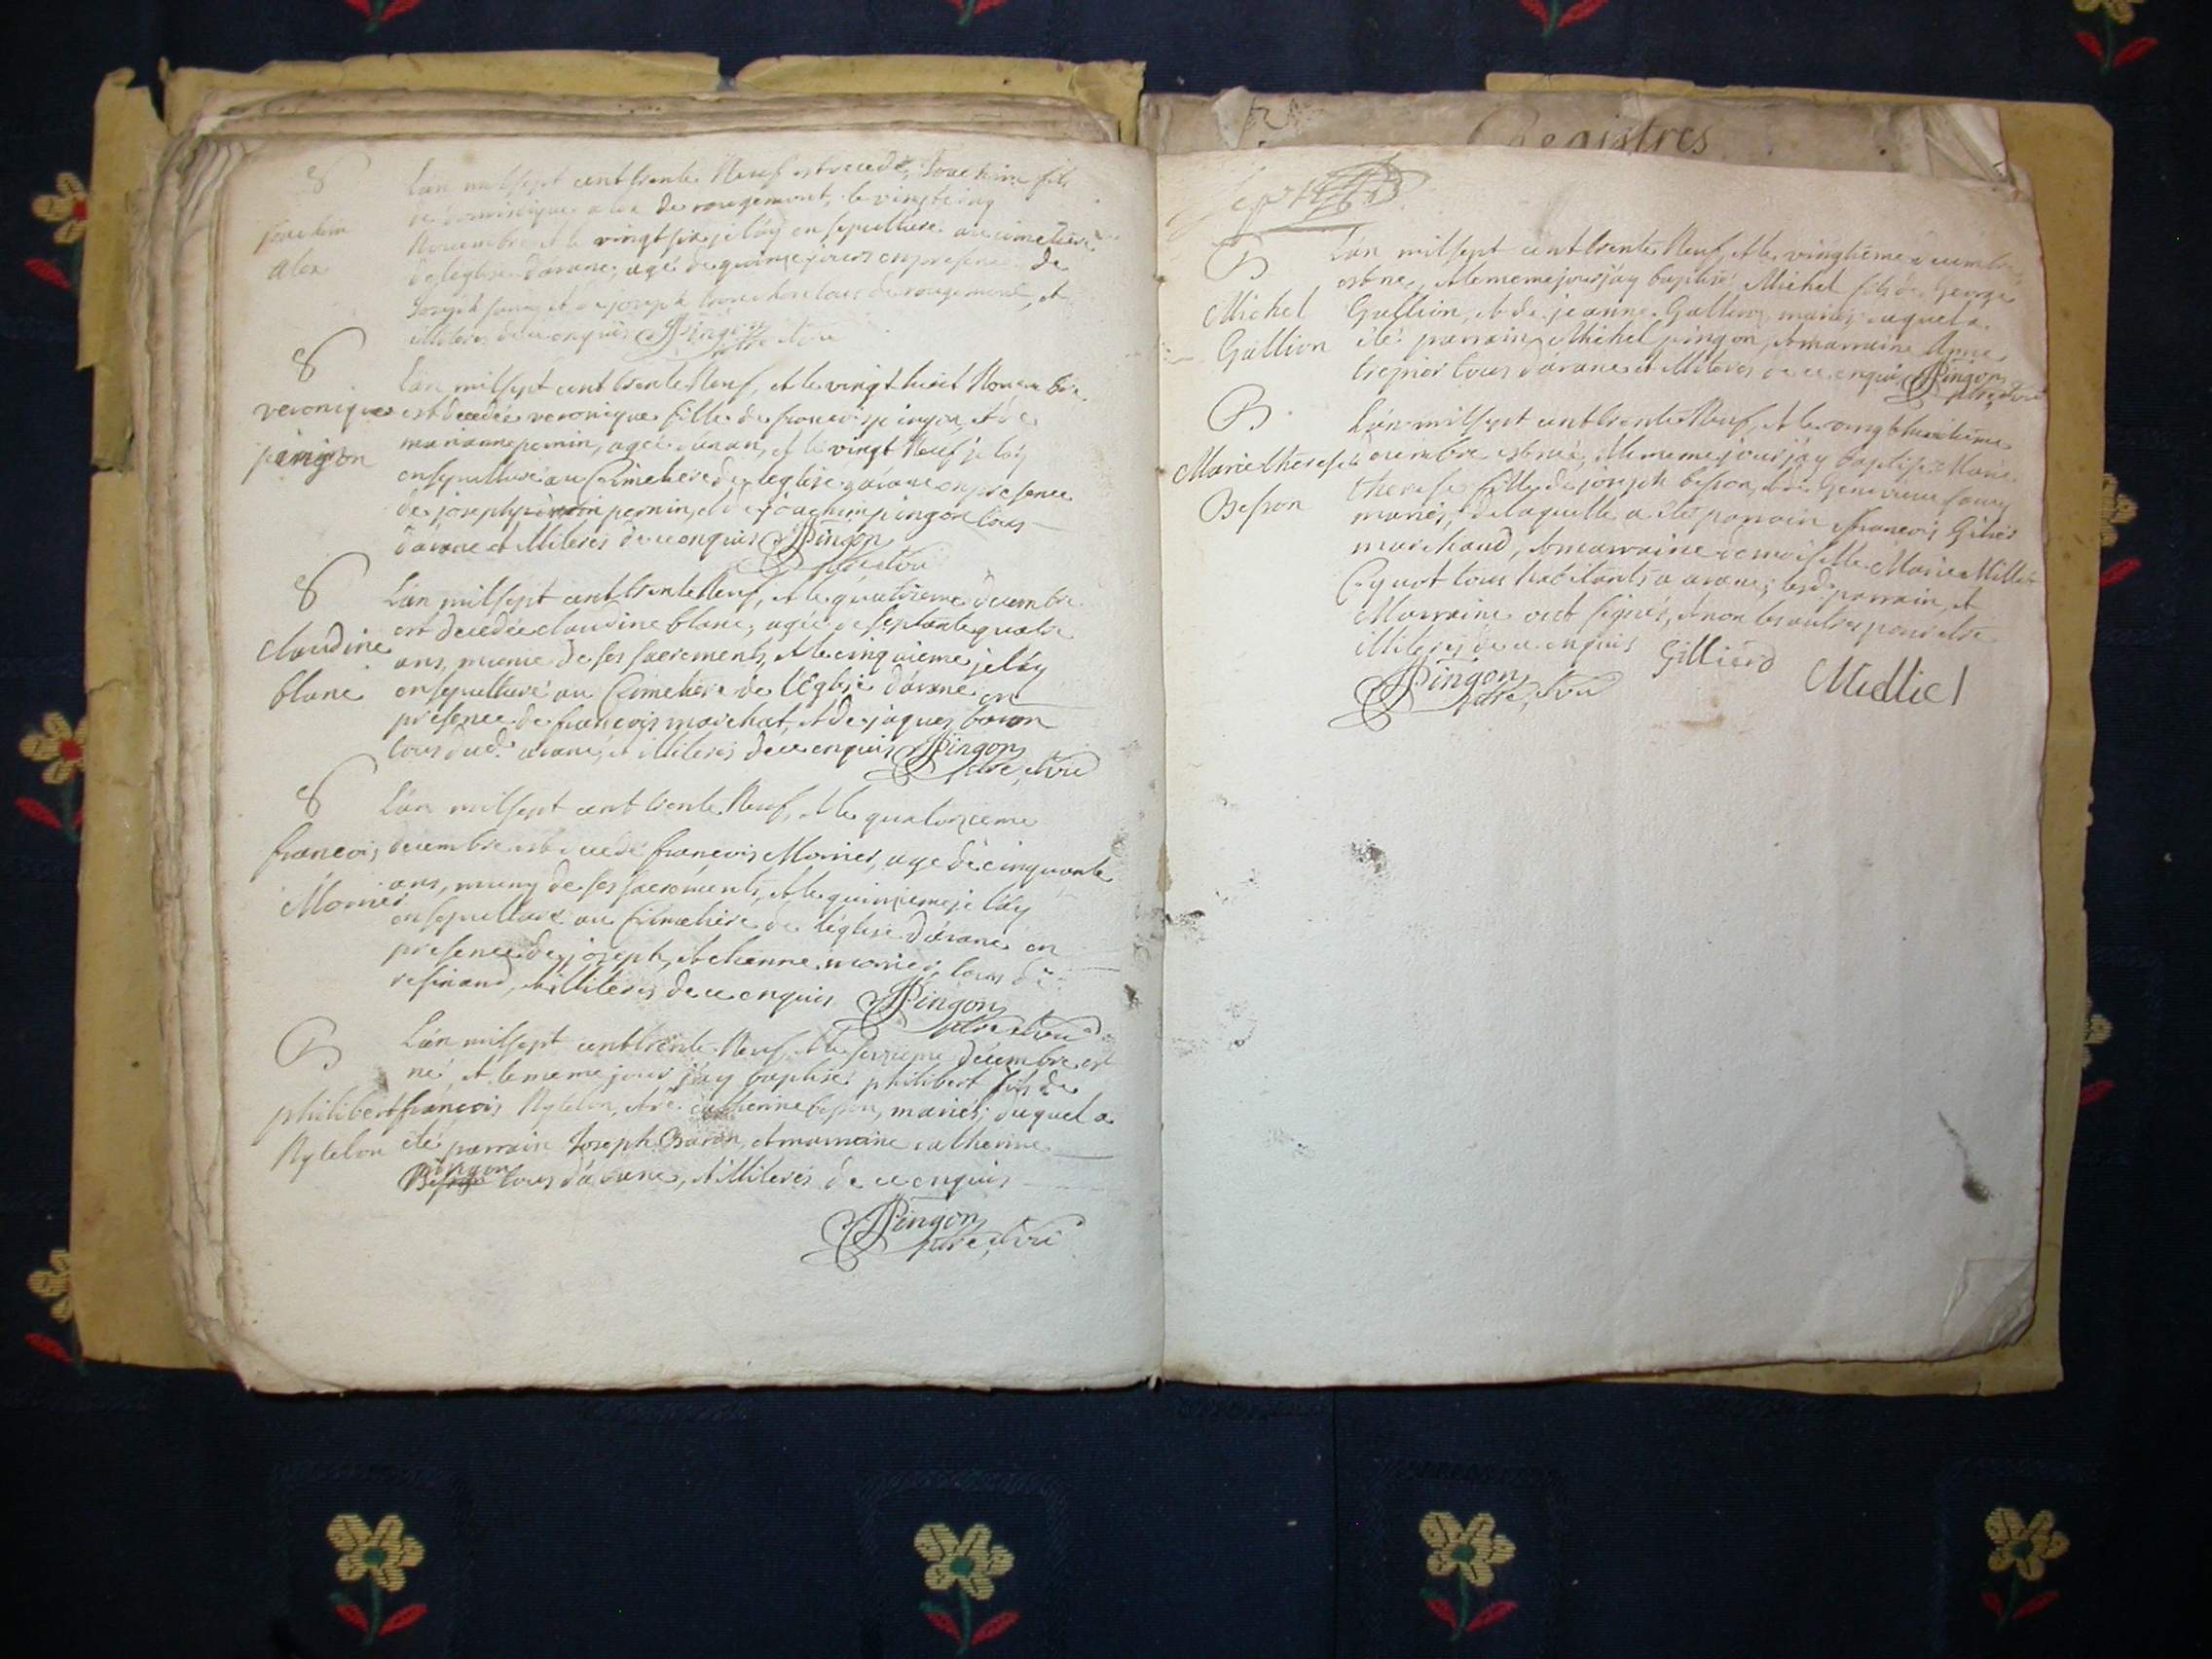 S
Joachim
alex
L'an mil sept cent trente Neuf est decedé, Joachim fils
de dominique alex de rougemont, le vingt cinq
Novembre, et le vingt six je l'ay ensepulturé au cimetiere
de l'eglise d'arane, agé de quinze jours en presence de
Joseph et de joseph tous de rougemont, et
illiteres de ce enquis Pingon
ptre et vic
S
veronique
pingon
L'an mil sept cent trente Neuf, et le vingt huit Novembre
est decedée veronique fille de francois pingon, et de
marianne pernin, agée d'un an, et le vingt Neuf je l'ay
ensepulturé au Cimetiere de l'eglise d'arane en presence
de joseph pernin, et de joachim pingon tous
d'arane et illiteres de ce enquis Pingon
ptre et vic
S
claudine
blanc
L'an mil sept cent trente Neuf, et le quatrieme decembre
est decedée claudine blanc, agée de septante quatre
ans, munie de ses sacrements, et le cinquieme je l'ay
ensepulturé au Cimetiere de l'Eglise d'arane en
presence de francois marchat, et de jaques baron
tous dud. arane, et illiteres de ce enquis Pingon
ptre et vic
S
francois
Mornier
L'an mil sept cent trente Neuf, et le quatorzieme
decembre est decedé francois Mornier, agé de cinquante
ans, muny de ses sacrements, et le quinzieme je l'ay
ensepulturé au Cimetiere de l'eglise d'arane en
presence de joseph, et etienne mornier, tous de
resinand, et illiteres de ce enquis Pingon
ptre et vic
B
philibert
Nylelon
L'an mil sept cent trente Neuf, et le seizieme decembre est
né, et le meme jour j'ay baptisé philibert fils de
francois Nylelon, et de catherine besson, mariés; duquel a
été parrain Joseph Baron, et marraine catherine
pingon tous d'arane, et illiteres de ce enquis
Pingon
ptre et vic
Registres
B
Michel
Gallion
L'an mil sept cent trente Neuf, et le vingtieme decembre
est né, et le meme jour j'ay baptisé Michel fils de George
Gallion, et de jeanne Gallion mariés, duquel a
été parrain Michel pingon, et marraine Anne
trepier tous d'arane et illiteres de ce enquis Pingon
ptre et vic
B
Marie therese
Besson
L'an mil sept cent trente Neuf, et le vingt huitieme
decembre est née, et le meme jour j'ay baptisé Marie
therese fille de joseph besson, et de Genevieve
mariés, de laquelle a été parrain francois Gilier
marchand, et marraine demoiselle Marie Milliet
Cyvot tous habitants a arane; lesd. parrain, et
Marraine ont signés, et non les autres pour etre
illiteres de ce enquis Gillierd Milliet
Pingon
ptre et vic